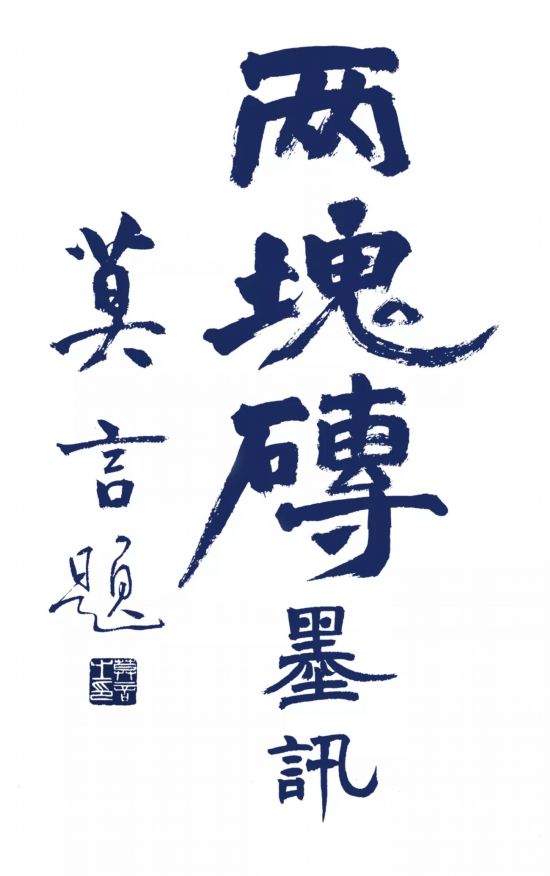 两塊磚墨訊
莫言題